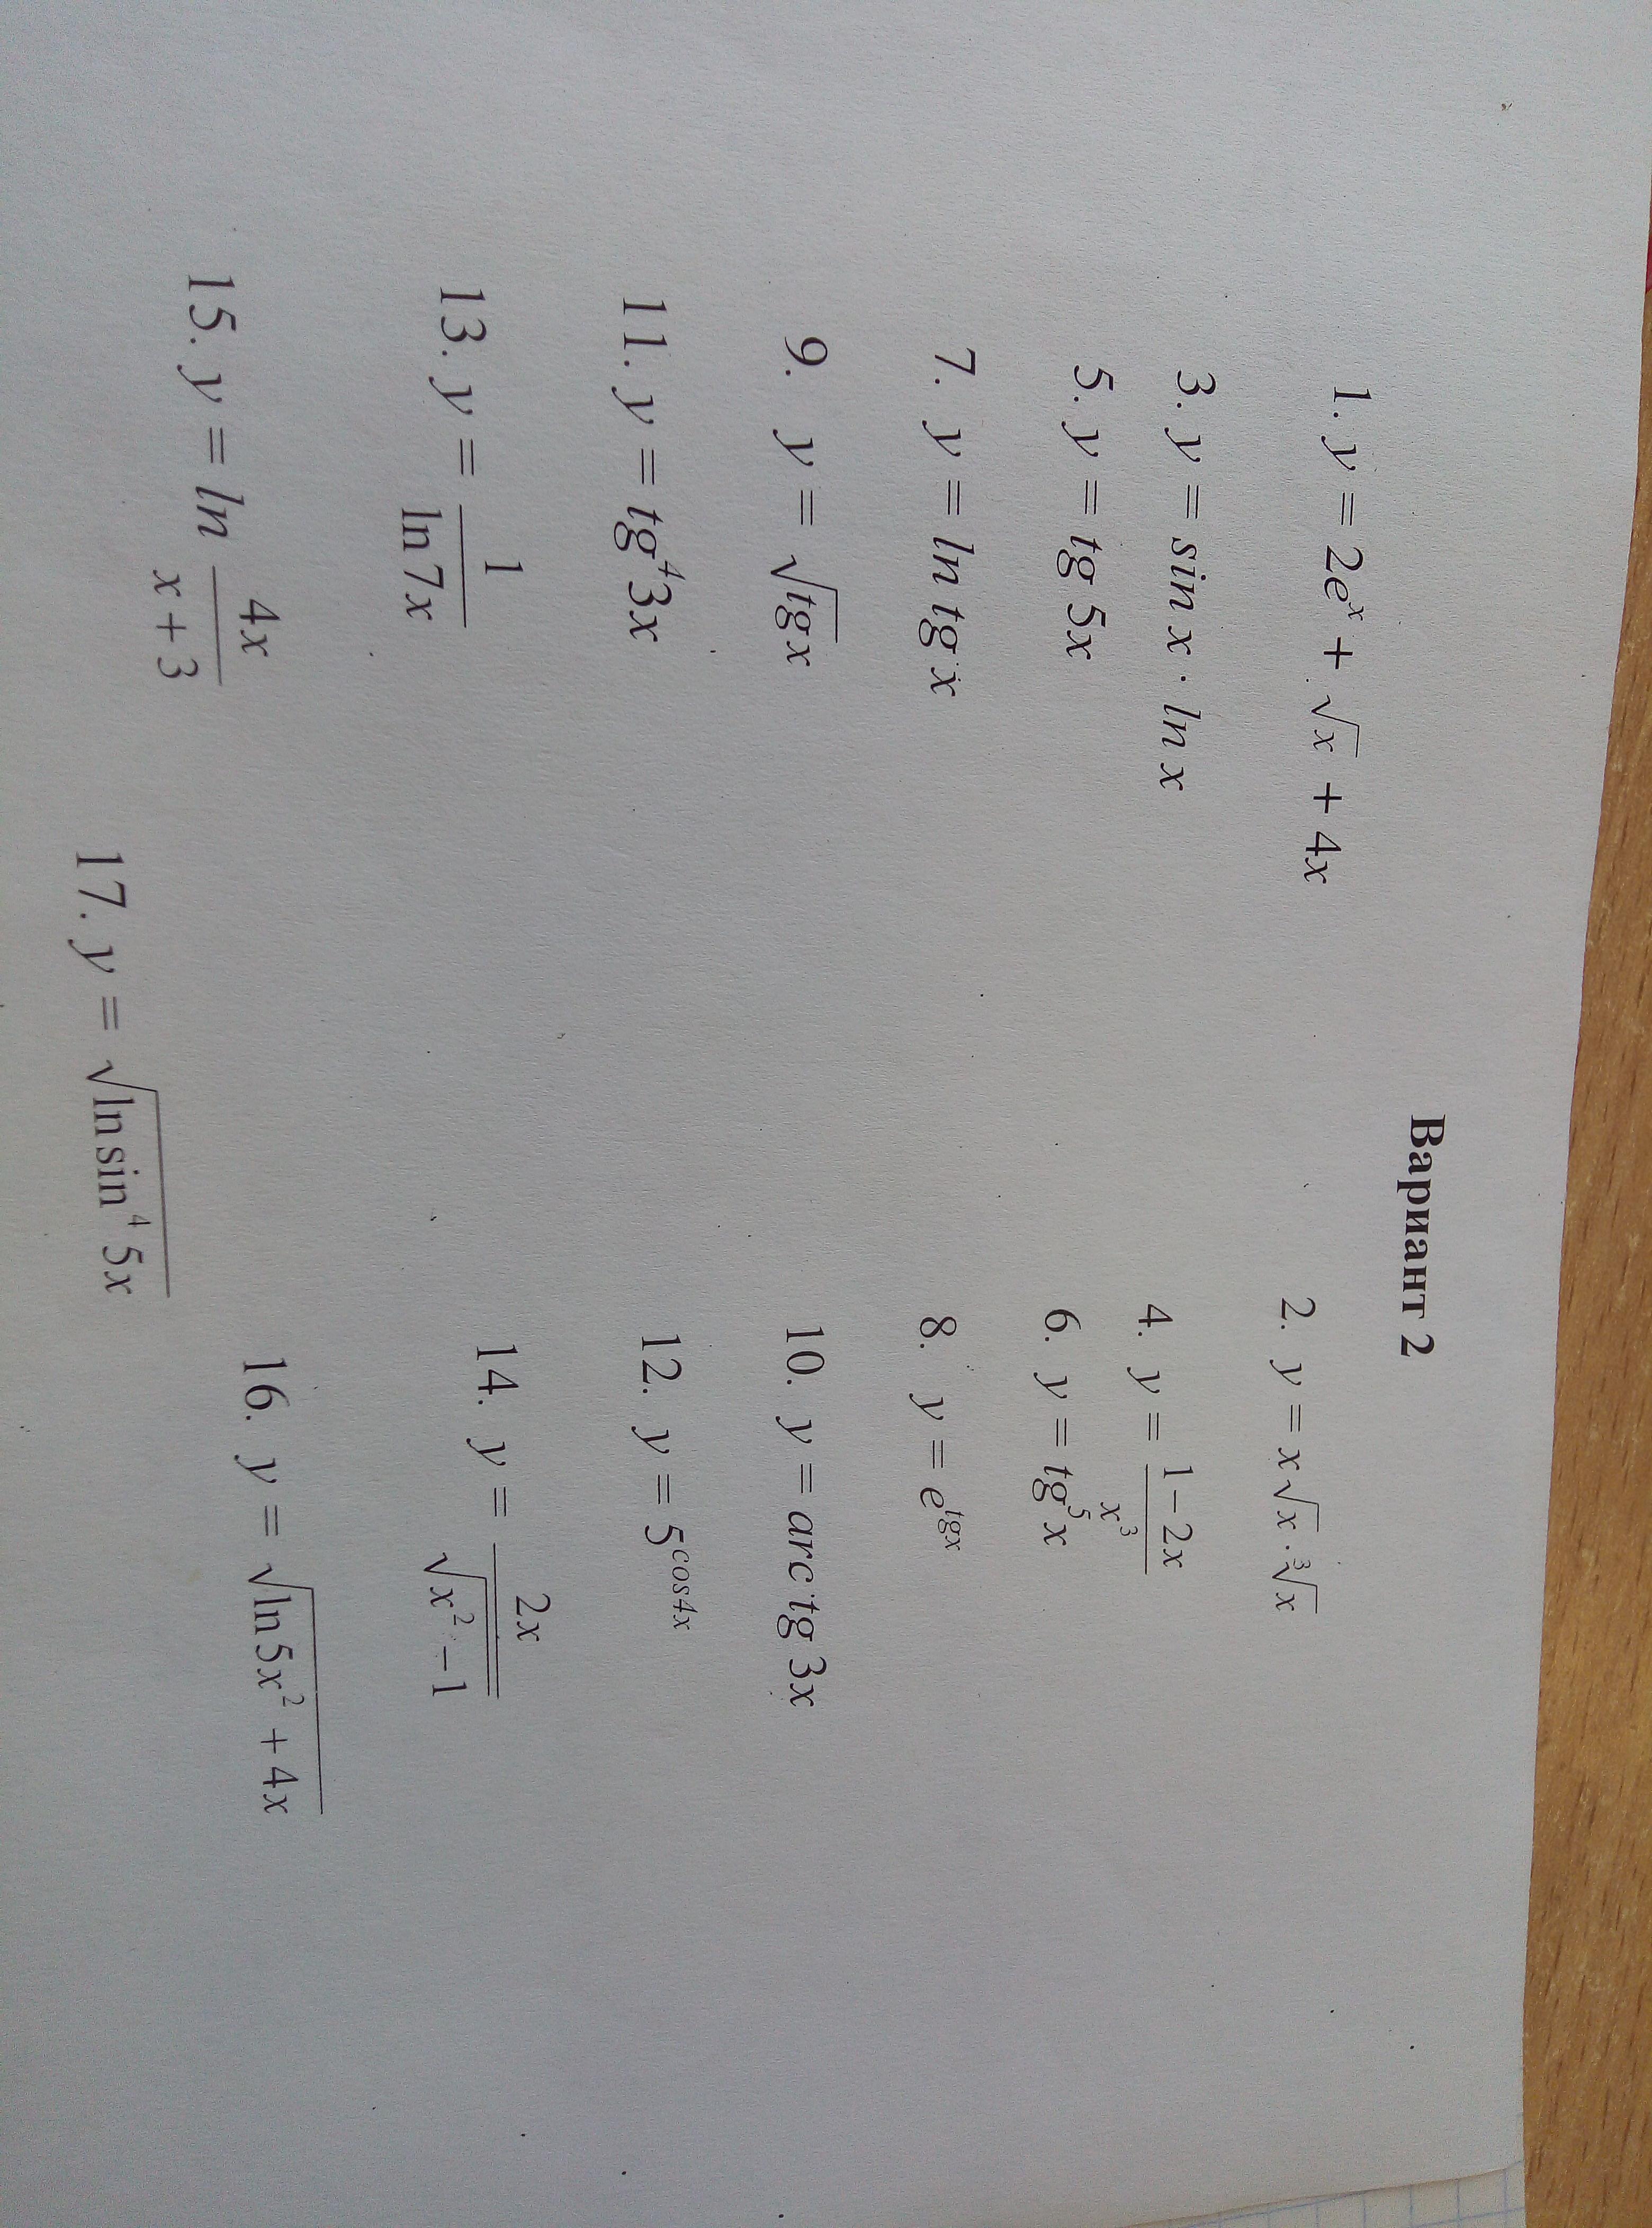 Вариант 2
1. y = 2eˣ + √x + 4x
2. y = x√x · ∛x
3. y = sin x · ln x
4. y = (1 − 2x)/x³
5. y = tg 5x
6. y = tg⁵x
7. y = ln tg x
8. y = e^(tgx)
9. y = √(tg x)
10. y = arc tg 3x
11. y = tg⁴3x
12. y = 5^(cos4x)
13. y = 1/(ln 7x)
14. y = 2x/√(x² − 1)
15. y = ln 4x/(x + 3)
16. y = √(ln 5x² + 4x)
17. y = √(ln sin⁴ 5x)